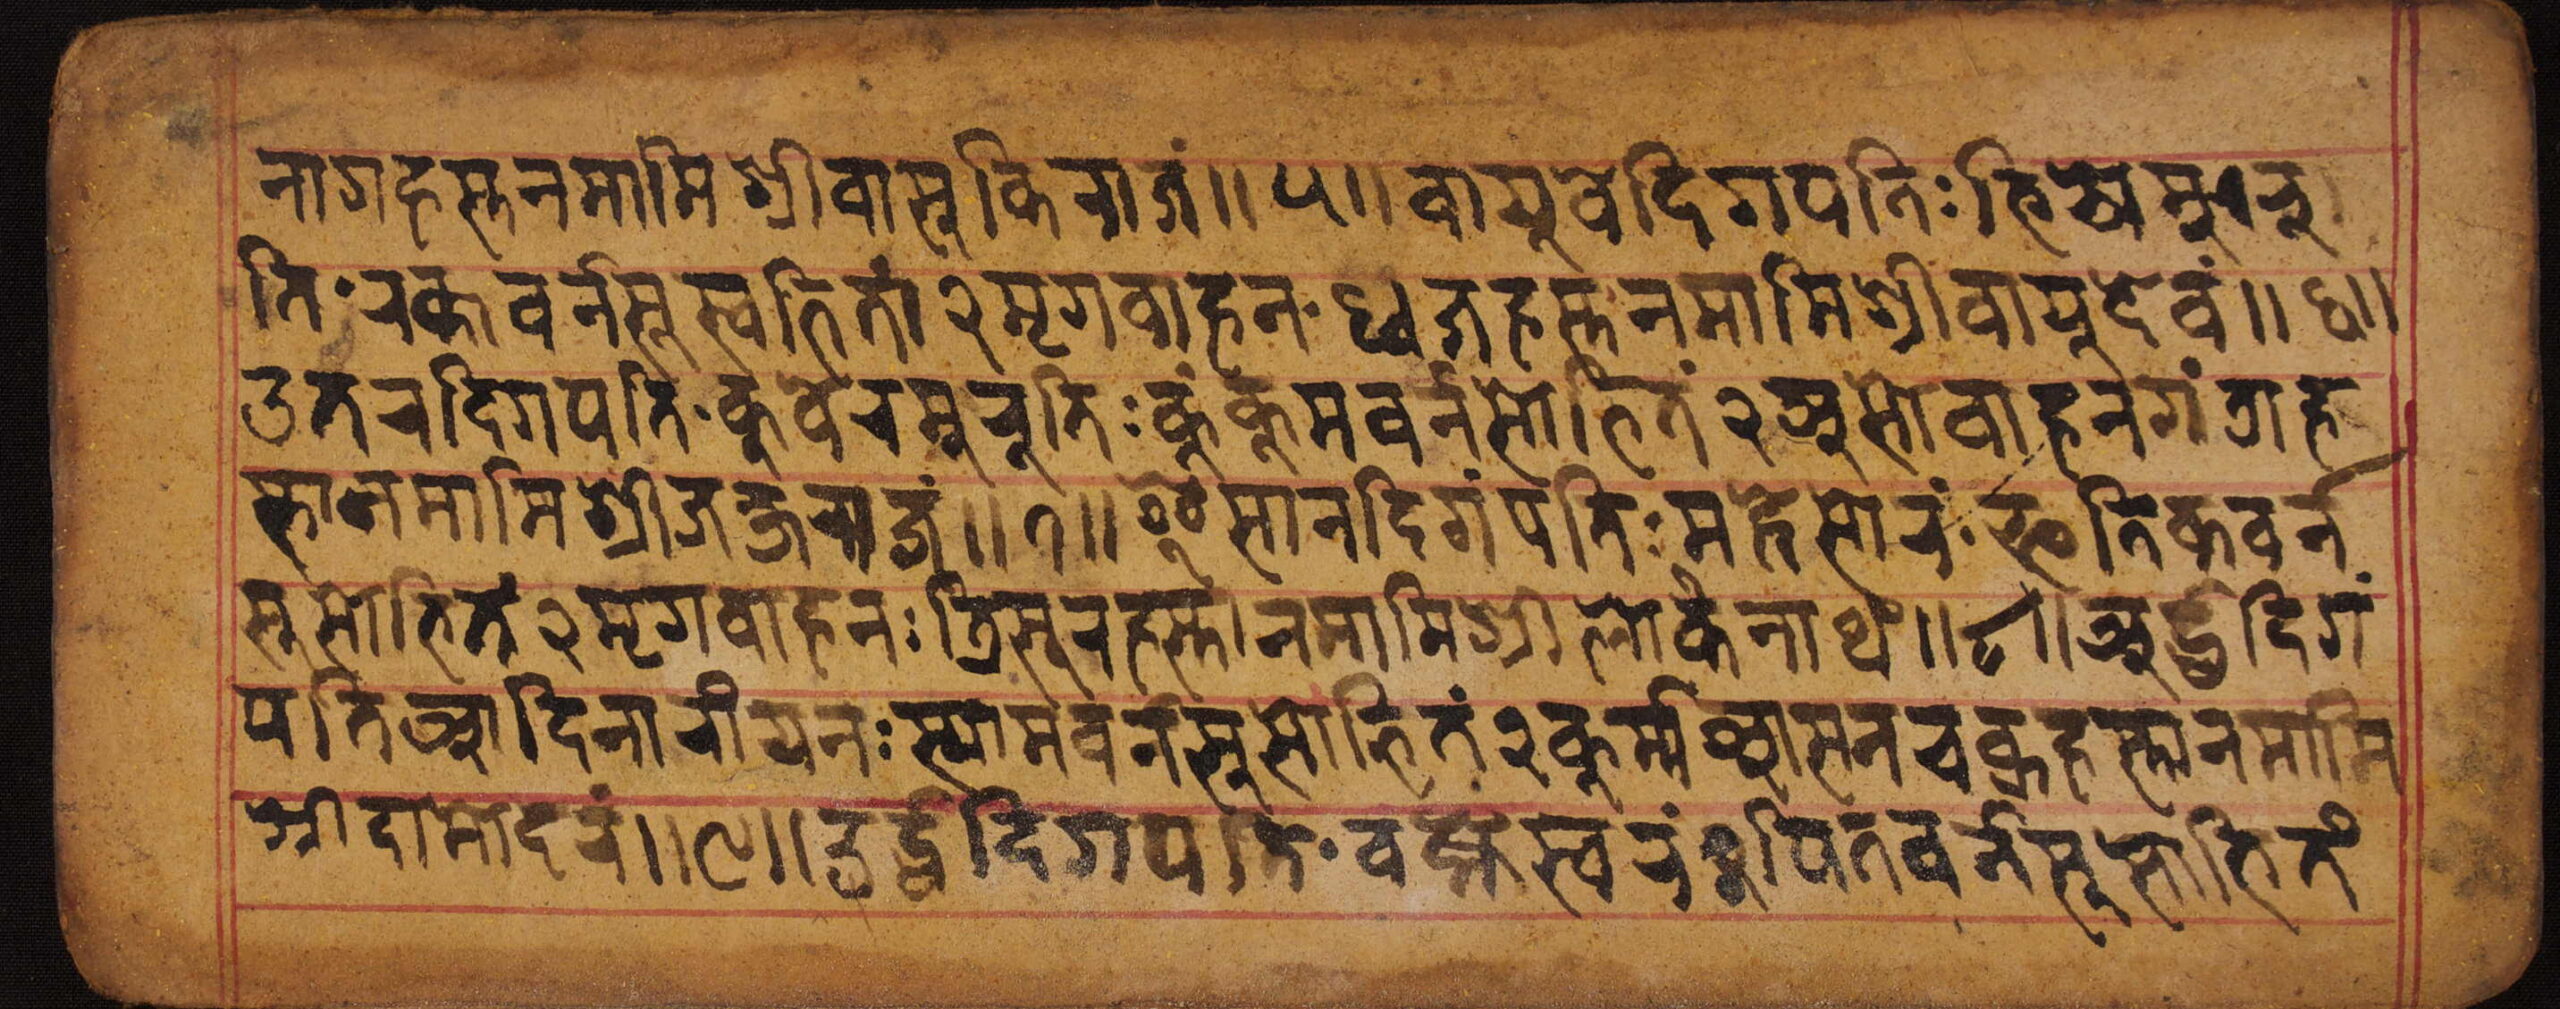 नागहस्तनमामिश्रीवासूकिराजं॥५॥वायूवेदिगपतिःहिअमूर
ति·रक्तवर्नसूस्वहितां२मृगवाहन·ध्वजहस्तनमामिश्रीवायूदेवं॥६॥
उतरदिगपति·कूवेरमूरूतिःकूंकूमवर्नसोहितं२अूसोवाहनगंत्राह
स्तानमामिश्रीजक्षराजं॥७॥ईसानदिगंपतिःमहेसोरं·स्फतिकवर्न
सूसोहितं२मृगवाहनःत्रिसूरहस्ता।नमामिश्रीलोकंनाथं॥८॥अूर्द्धदिगं
पतिआदिनारीयनःस्यामवर्नसूसोहितं२कूर्म्मआसनचक्रहस्तानमामि
श्रीदामोदरं॥९॥दुर्द्धदिगपति·वर्ह्मस्वरं२पितवर्नसूसोहितं